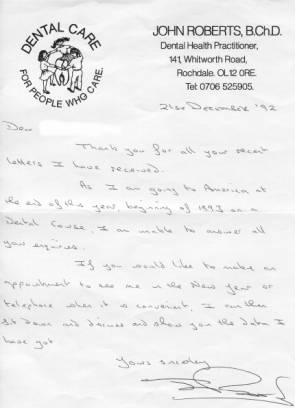 DENTAL CARE
FOR PEOPLE WHO CARE.
JOHN ROBERTS, B.Ch.D.
Dental Health Practitioner,
141, Whitworth Road,
Rochdale. OL12 0RE.
Tel: 0706 525905.
21st December '92
Dear
Thank you for all your recent
letters I have received.
As I am going to America at
the end of this year, begining of 1993 on a
Dental Course, I am unable to answer all
your enquiries.
If you would like to make an
appointment to see me in the New Year or
telephone when it is convenient, I can then
sit down and discuss and show you the data I
have got
Yours sincerely